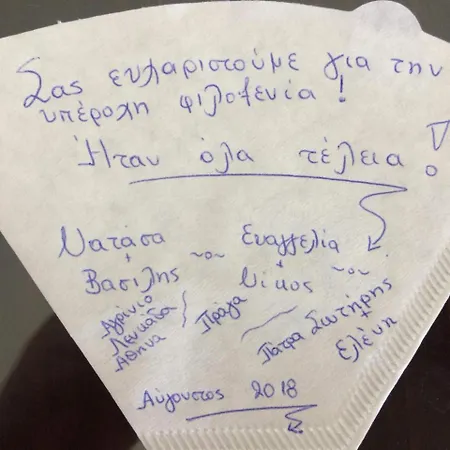 Σας ευχαριστούμε για την
υπέροχη φιλοξενία!
Ήταν όλα τέλεια!
Νατάσα
+
Βασίλης
Ευαγγελία
+
Νίκος
Αγρίνιο
Λευκάδα
Αθήνα
Πράγα
Πάτρα
Σωτήρης
+
Ελένη
Αύγουστος 2018